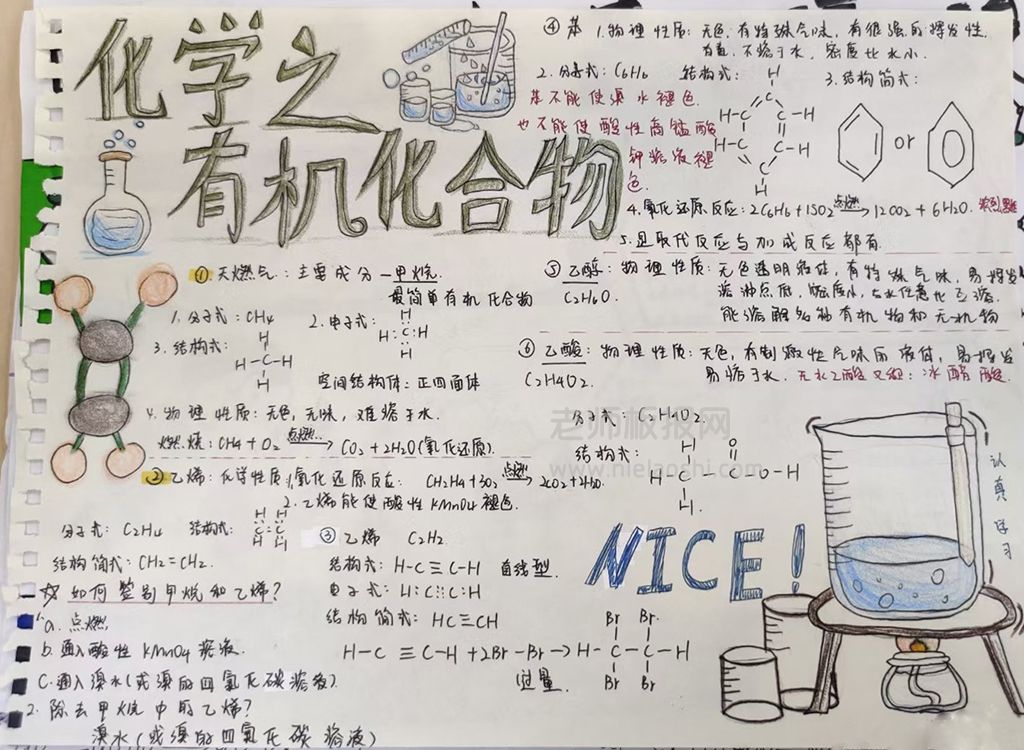 化学之
有机化合物
① 天燃气：主要成分—甲烷.
最简单有机化合物
1.分子式：CH4
2.电子式：
H
H:C:H
H
3.结构式：
H
H-C-H
H
空间结构体：正四面体
4.物理性质：无色，无味，难溶于水.
燃烧：CH4+O2 点燃→ CO2+2H2O(氧化还原).
② 乙烯：化学性质：1,氧化还原反应： C2H4+3O2 点燃→ 2CO2+2H2O.
2.乙烯能使酸性KMnO4褪色.
分子式：C2H4 结构式：
H H
C::C
H H
结构简式：CH2=CH2.
☆如何鉴别甲烷和乙烯？
a.点燃
b.通入酸性KMnO4溶液.
C.通入溴水(或溴的四氯化碳溶液).
2.除去甲烷中的乙烯？
溴水(或溴的四氯化碳溶液)
③ 乙烯 C2H2
结构式：H-C≡C-H 直线型.
电子式：H:C:::C:H
结构简式：HC≡CH
H-C≡C-H+2Br-Br→H-C-C-H
Br Br.
Br Br
过量.
④ 苯 1.物理性质：无色.有特殊气味，有很强的挥发性.
有毒，不溶于水，密度比水小.
2.分子式：C6H6 结构式：
苯不能使溴水褪色.
也不能使酸性高锰酸
钾溶液褪
色.
H
H-C C C-H
H-C C C-H
H
3.结构简式：
or
4.氧化还原反应：2C6H6+15O2 点燃→ 12CO2+6H2O.
5.且取代反应与加成反应都有
⑤ 乙醇：物理性质：无色透明液体，有特殊气味，易挥发
C2H6O.
能溶解多种有机物和无机物
⑥ 乙酸：物理性质：无色，有刺激性气味的液体，易挥发
C2H4O2.
易溶于水.无水乙酸又称：冰醋酸.
分子式：C2H4O2.
结构式：
H O
H-C-C-O-H
H.
老师板报网
www.nielaoshi.com
NICE!
认真学习